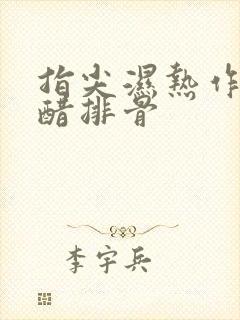 指尖濕熱作
醋排骨
李宇兵